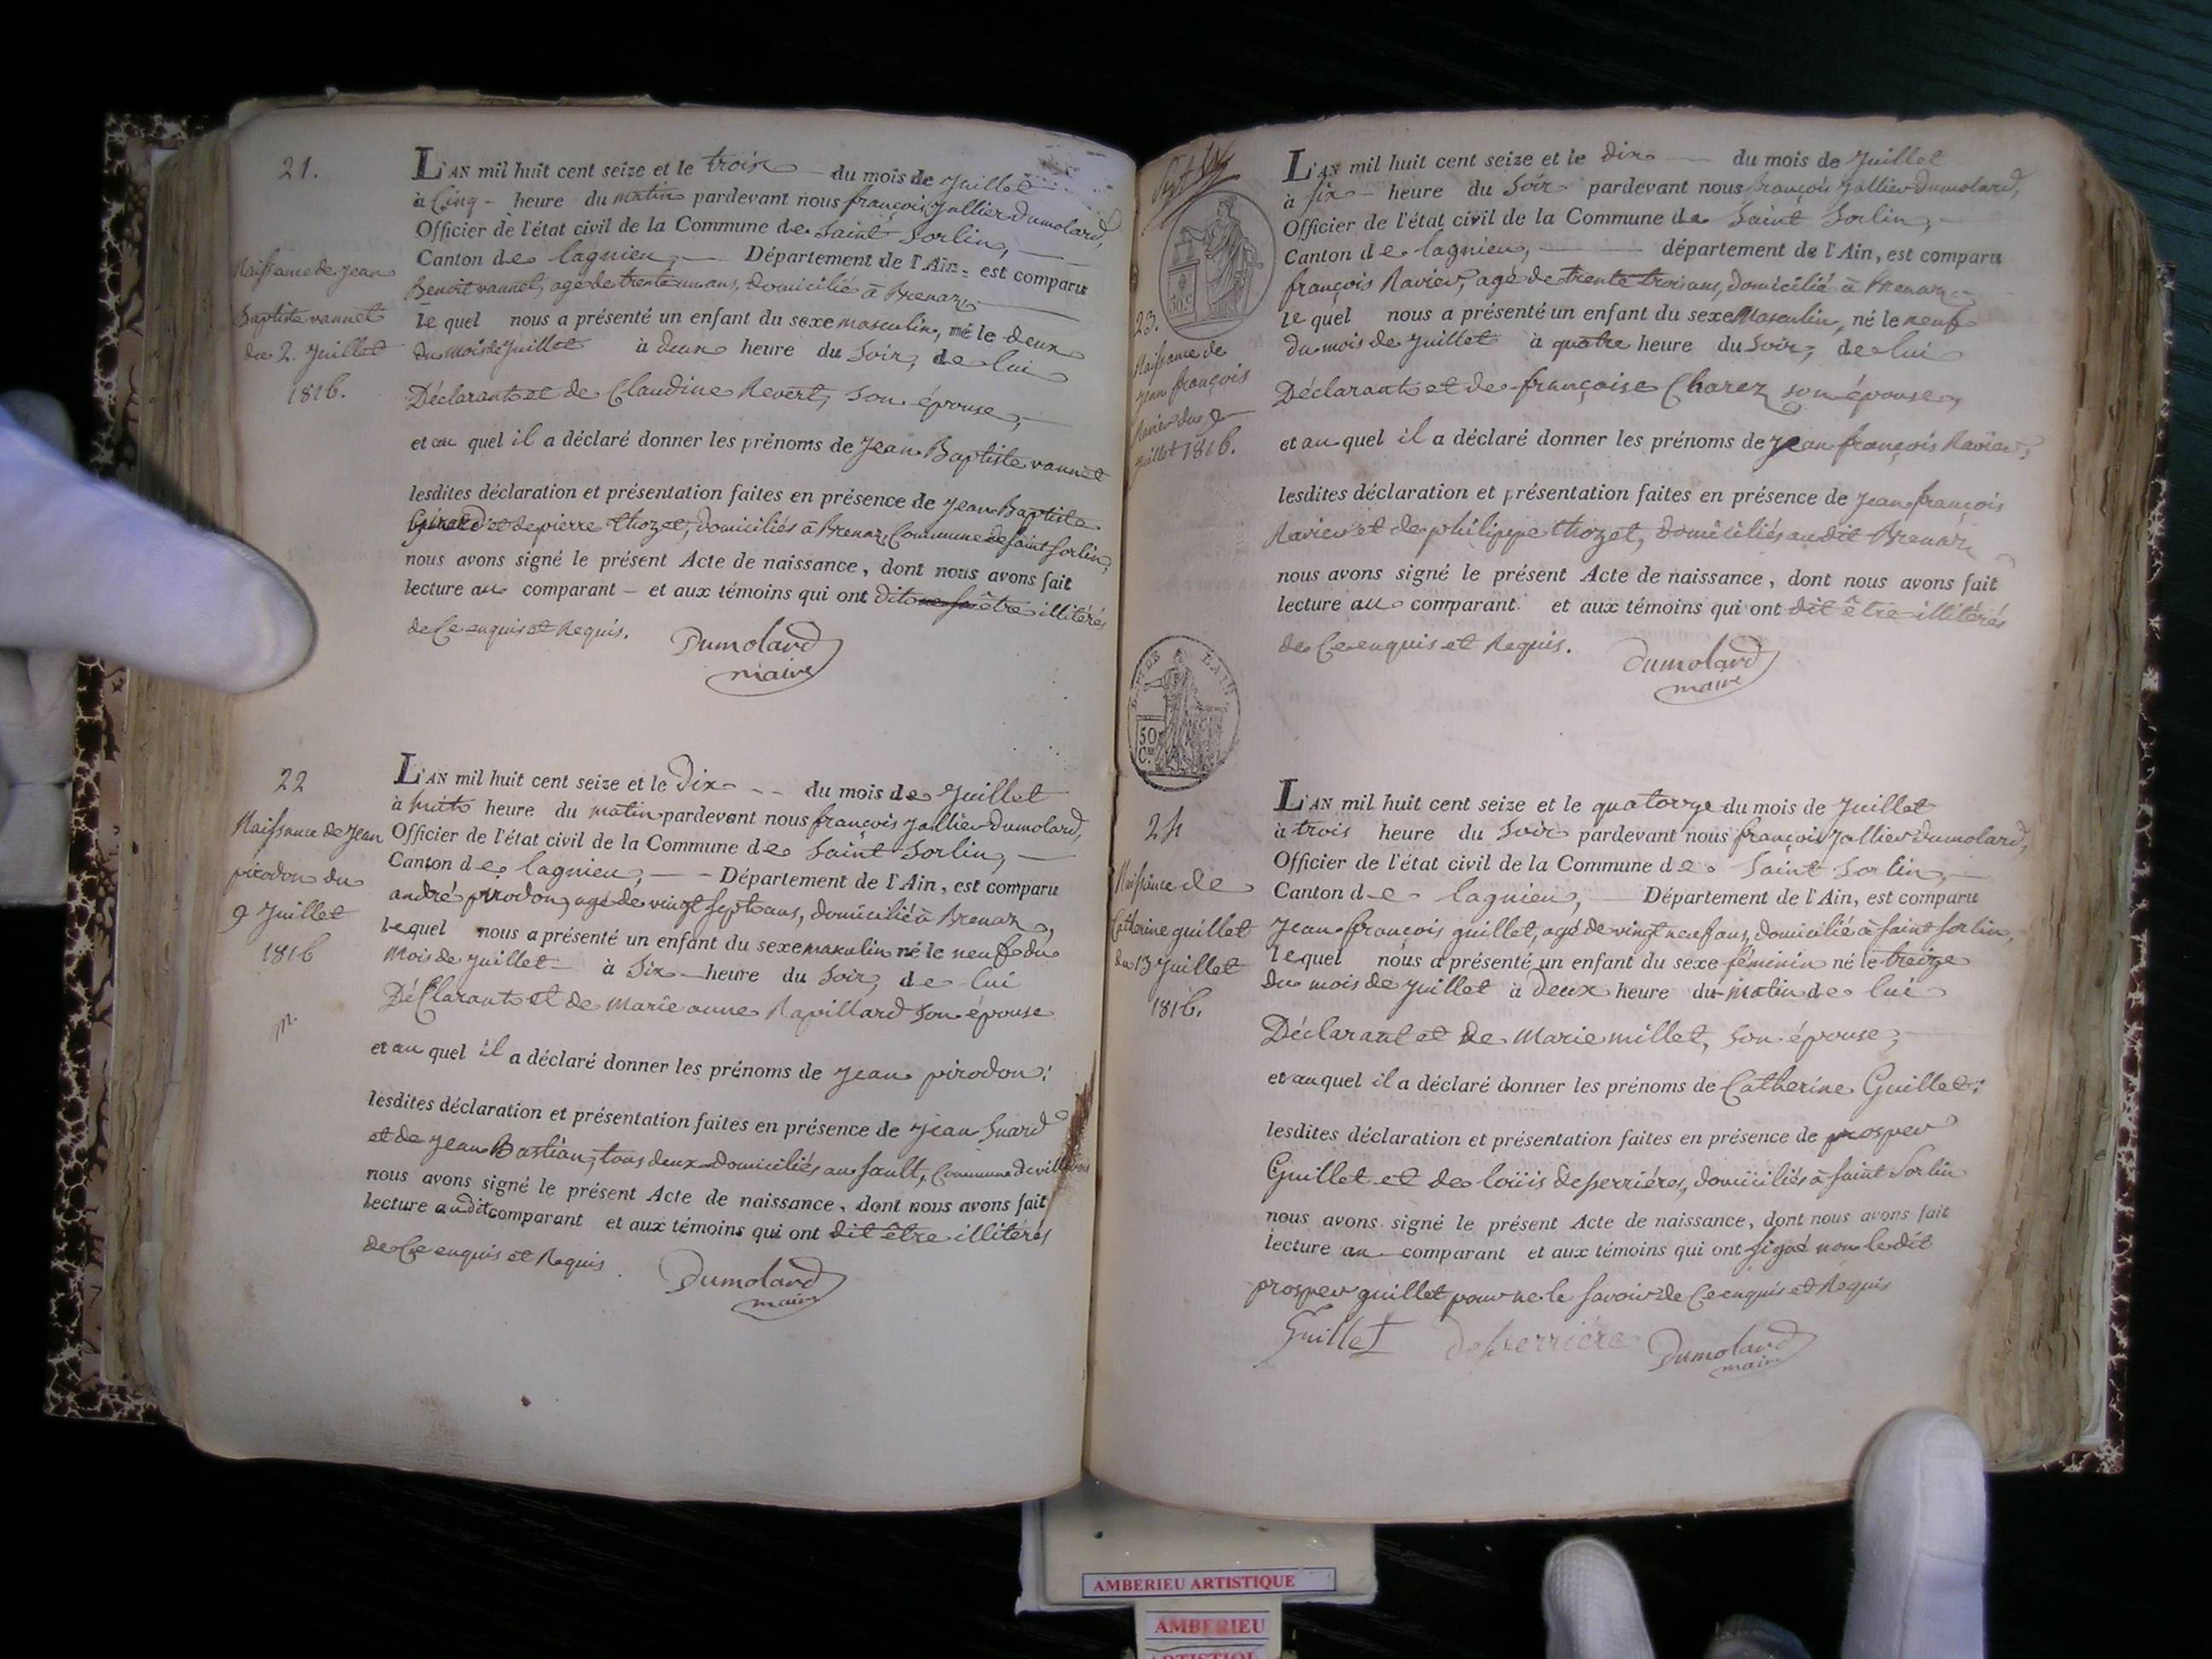 21.
Naissance de jean
Baptiste vannet
du 2. Juillet
1816.
L'AN mil huit cent seize et le trois du mois de Juillet
à Cinq heure du matin pardevant nous françois Jallier Dumolard,
Officier de l'état civil de la Commune de Saint Sorlin,
Canton de lagnieu, Département de l'Ain, est comparu
Benoit vannet, agé de trente un ans, domicilié à Brenaz
le quel nous a présenté un enfant du sexe masculin, né le deux
du mois de Juillet à deux heure du Soir, de lui
Déclarant et de Claudine Revert, Son épouse,
et au quel il a déclaré donner les prénoms de Jean Baptiste vannet
lesdites déclaration et présentation faites en présence de Jean Baptiste
et de pierre thozet, domiciliés à Brenaz, Commune de saint Sorlin,
nous avons signé le présent Acte de naissance, dont nous avons fait
lecture au comparant et aux témoins qui ont dit être illitérés
de Ce enquis et Requis.
Dumolard
maire
22
Naissance de Jean
pirodon du
9 Juillet
1816
L'AN mil huit cent seize et le Dix du mois de Juillet
à huit heure du matin pardevant nous françois Jallier Dumolard,
Officier de l'état civil de la Commune de Saint Sorlin,
Canton de lagnieu, Département de l'Ain, est comparu
andré pirodon, agé de vingt sept ans, domicilié à Brenaz,
le quel nous a présenté un enfant du sexe masculin né le neuf du
Mois de Juillet à Six heure du Soir, de lui
Déclarant et de Marie anne Rapillard Son épouse
et au quel il a déclaré donner les prénoms de Jean pirodon:
lesdites déclaration et présentation faites en présence de Jean Suard
et de Jean Bastian, tous deux domiciliés au Sault, Commune de villebois
nous avons signé le présent Acte de naissance, dont nous avons fait
lecture audit comparant et aux témoins qui ont dit être illitérés
de Ce enquis et Requis.
Dumolard
maire
50 C.
23.
Naissance de
jean françois
Ravier du 9
juillet 1816.
L'AN mil huit cent seize et le dix du mois de Juillet
à six heure du Soir pardevant nous françois Jallier Dumolard,
Officier de l'état civil de la Commune de Saint Sorlin,
Canton de lagnieu, département de l'Ain, est comparu
françois Ravier, agé de trente trois ans, domicilié à Brenaz
le quel nous a présenté un enfant du sexe Masculin, né le neuf
du mois de Juillet à quatre heure du Soir, de lui
Déclarant et de françoise Charez son épouse,
et au quel il a déclaré donner les prénoms de Jean françois Ravier.
lesdites déclaration et présentation faites en présence de Jean françois
Ravier et de philippe thozet, domiciliés audit Brenaz
nous avons signé le présent Acte de naissance, dont nous avons fait
lecture au comparant et aux témoins qui ont dit être illitérés
de Ce enquis et Requis.
Dumolard
maire
50 C.
24
Naissance de
Catherine guillet
du 13 Juillet
1816.
L'AN mil huit cent seize et le quatorze du mois de Juillet
à trois heure du Soir pardevant nous françois Jallier Dumolard,
Officier de l'état civil de la Commune de Saint Sorlin,
Canton de lagnieu, Département de l'Ain, est comparu
Jean françois guillet, agé de vingt neuf ans, domicilié à saint Sorlin,
le quel nous a présenté un enfant du sexe féminin né le treize
du mois de Juillet à deux heure du matin de lui
Déclarant et de Marie millet, son épouse,
et au quel il a déclaré donner les prénoms de Catherine Guillet:
lesdites déclaration et présentation faites en présence de prosper
Guillet et de loüis desserriéres, domiciliés à saint Sorlin
nous avons signé le présent Acte de naissance, dont nous avons fait
lecture au comparant et aux témoins qui ont signé non le dit
prosper guillet pour ne le savoir de Ce enquis et Requis
Guillet
Desserriere
Dumolard
maire
AMBERIEU ARTISTIQUE
AMBERIEU
ARTISTIQUE